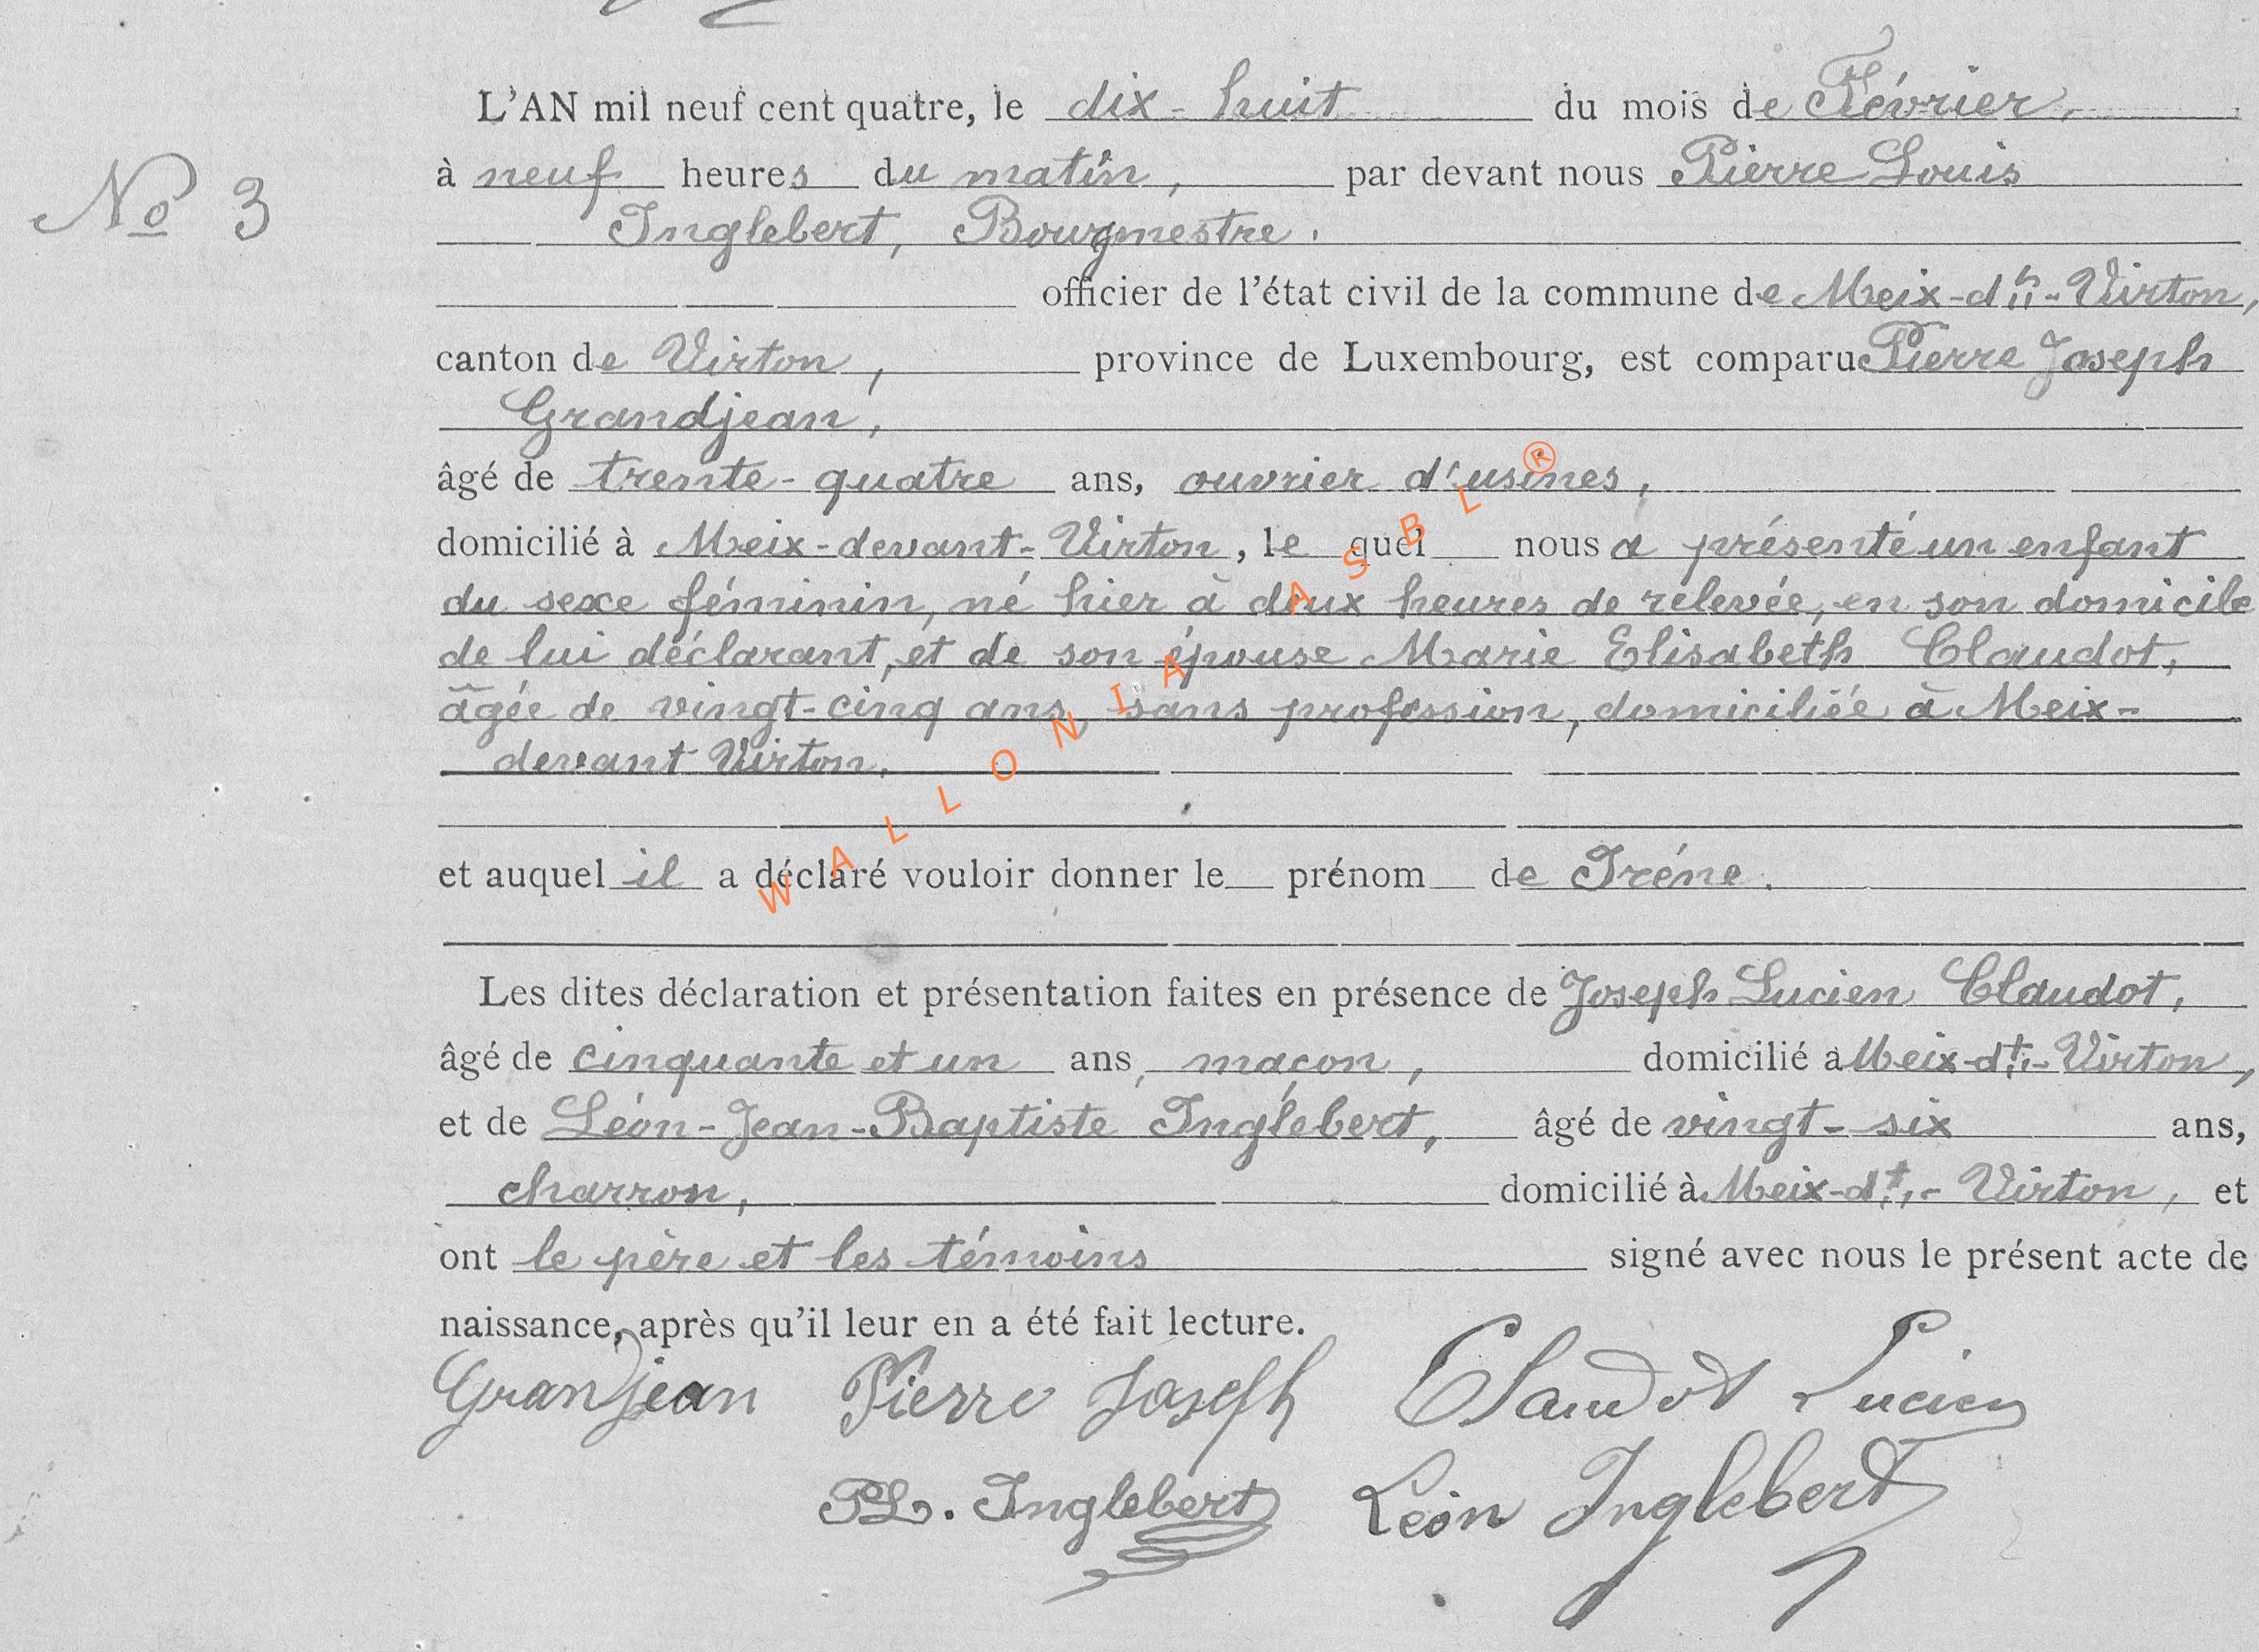 L'AN mil neuf cent quatre, le dix-huit du mois de Février,
No 3
à neuf heures du matin, par devant nous Pierre Louis
Inglebert, Bourgmestre.
officier de l'état civil de la commune de Meix-dt-Virton,
canton de Virton, province de Luxembourg, est comparu Pierre Joseph
Grandjean,
âgé de trente-quatre ans, ouvrier d'usines,
domicilié à Meix-devant-Virton, le quel nous a présenté un enfant
du sexe féminin, né hier à deux heures de relevée, en son domicile
de lui déclarant, et de son épouse Marie Elisabeth Claudot,
âgée de vingt-cinq ans, sans profession, domiciliée à Meix-
devant Virton.
et auquel il a déclaré vouloir donner le prénom de Iréne.
Les dites déclaration et présentation faites en présence de Joseph Lucien Claudot,
âgé de cinquante et un ans, maçon, domicilié à Meix-dt-Virton,
et de Léon-Jean-Baptiste Inglebert, âgé de vingt-six ans,
charron, domicilié à Meix-dt-Virton, et
ont le père et les témoins signé avec nous le présent acte de
naissance, après qu'il leur en a été fait lecture.
Grandjean Pierre Joseph Claudot Lucien
PL. Inglebert Léon Inglebert
WALLONIA ASBL ®